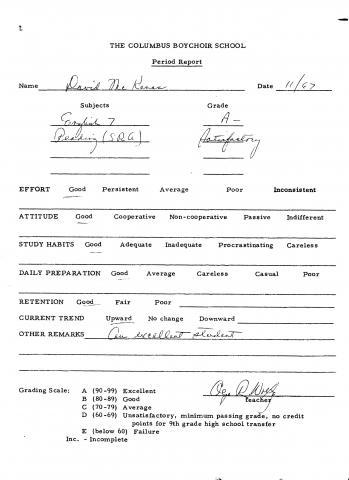 THE COLUMBUS BOYCHOIR SCHOOL
Period Report
Name David Mc Date 11/67
Subjects Grade
English 7 A-
Reading (SRA) Satisfactory
EFFORT Good Persistent Average Poor Inconsistent
ATTITUDE Good Cooperative Non-cooperative Passive Indifferent
STUDY HABITS Good Adequate Inadequate Procrastinating Careless
DAILY PREPARATION Good Average Careless Casual Poor
RETENTION Good Fair Poor
CURRENT TREND Upward No change Downward
OTHER REMARKS An excellent student
Grading Scale: A (90-99) Excellent
B (80-89) Good
C (70-79) Average
D (60-69) Unsatisfactory, minimum passing grade, no credit
points for 9th grade high school transfer
E (below 60) Failure
Inc. - Incomplete
teacher